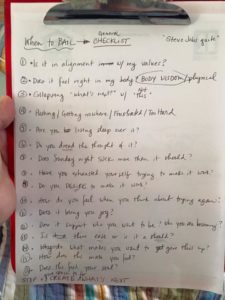 General
When to BAIL → CHECKLIST
"Steve Jobs quote"
① Is it in alignment w/ my values?
② Does it feel right in my body? (BODY WISDOM) / physical
③ Collapsing "what's next" w/ "this"
④ Hurting / Getting nowhere / Frustrated / Too Hard
⑤ Are you losing sleep over it?
⑥ Do you dread the thought of it?
⑦ Does Sunday night suck more than it should?
⑧ Have you exhausted yourself trying to make it work?
⑨ Do you DESIRE to make it work?
How do you feel when you think about trying again?
Does it bring you joy?
Does it support who you want to be? Who you are becoming?
Is there ease or is it a should?
Integrate what makes you want to give this up?
How does this make you feel?
Does this feel your soul?
STEP 2 CREATE WHAT'S NEXT